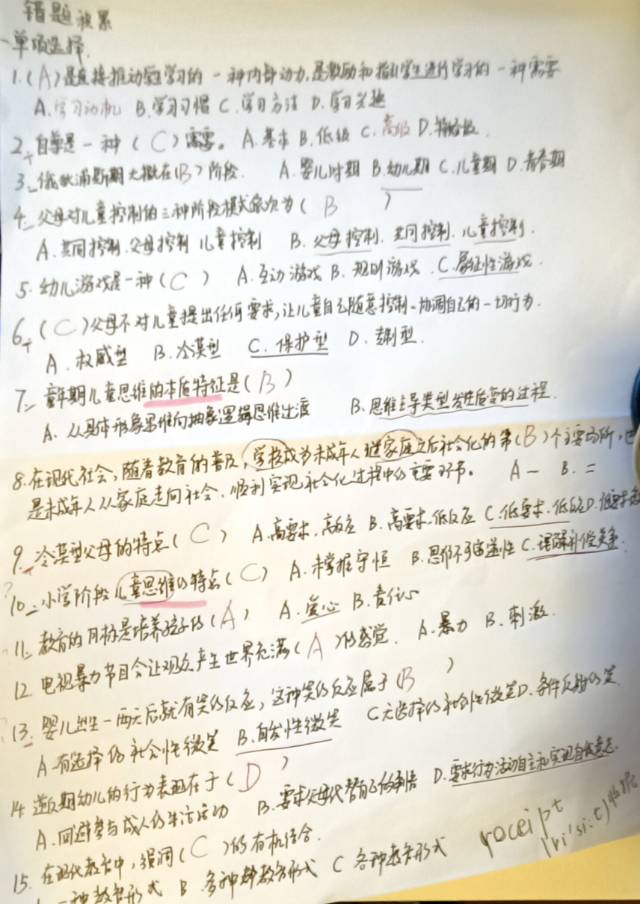 错题积累
一单项选择.
1.(A)是直接推动学习的一种内部动力,是激励和指引学生进行学习的一种需要
A.学习动机 B.学习习惯 C.学习方法 D.学习兴趣
2.自尊是一种(C)需要。 A.基本 B.低级 C.高级 D.
3.俄狄浦斯期大概在(B)阶段. A.婴儿时期 B.幼儿期 C.儿童期 D.青春期
4.父母对儿童控制的三种阶段模式依次为(B)
A.共同控制.父母控制 儿童控制 B.父母控制.共同控制.儿童控制.
5.幼儿游戏是一种(C) A.互动游戏 B.规则游戏 C.象征性游戏.
6.(C)父母不对儿童提出任何要求,让儿童自己随意控制、协调自己的一切行为.
A.权威型 B.冷漠型 C.保护型 D.专制型.
7.童年期儿童思维的本质特征是(B)
A.从具体形象思维向抽象逻辑思维过渡 B.思维主导类型发生质变的过程.
8.在现代社会,随着教育的普及,学校成为未成年人继家庭之后社会化的第(B)个主要场所,也
是未成年人从家庭走向社会.顺利实现社会化过程中的重要环节。 A一 B.二
9.冷漠型父母的特点(C) A.高要求.高反应 B.高要求.低反应 C.低要求.低反应 D.低要求高
10.小学阶段儿童思维的特点(C) A.未掌握守恒 B.思维不可逆性 C.
11.教育的目标是培养孩子的(A) A.爱心 B.责任心
12 电视暴力节目会让观众产生世界充满(A)的感觉. A.暴力 B.刺激.
13.婴儿出生一两天后就有笑的反应,这种笑的反应属于(B)
A.有选择的社会性微笑 B.自发性微笑 C无选择的社会性微笑 D.条件反射的笑
14 逆反期幼儿的行为表现在于(D)
A.回避参与成人的生活活动 B.要求父母代替自己的事情 D.要求行为活动自主和实现自我意志.
15.在现代教育中,强调(C)的有机结合.
一种教育形式 B 多种教育形式 C 各种教育形式
roceipt
(ri'si:t)收据